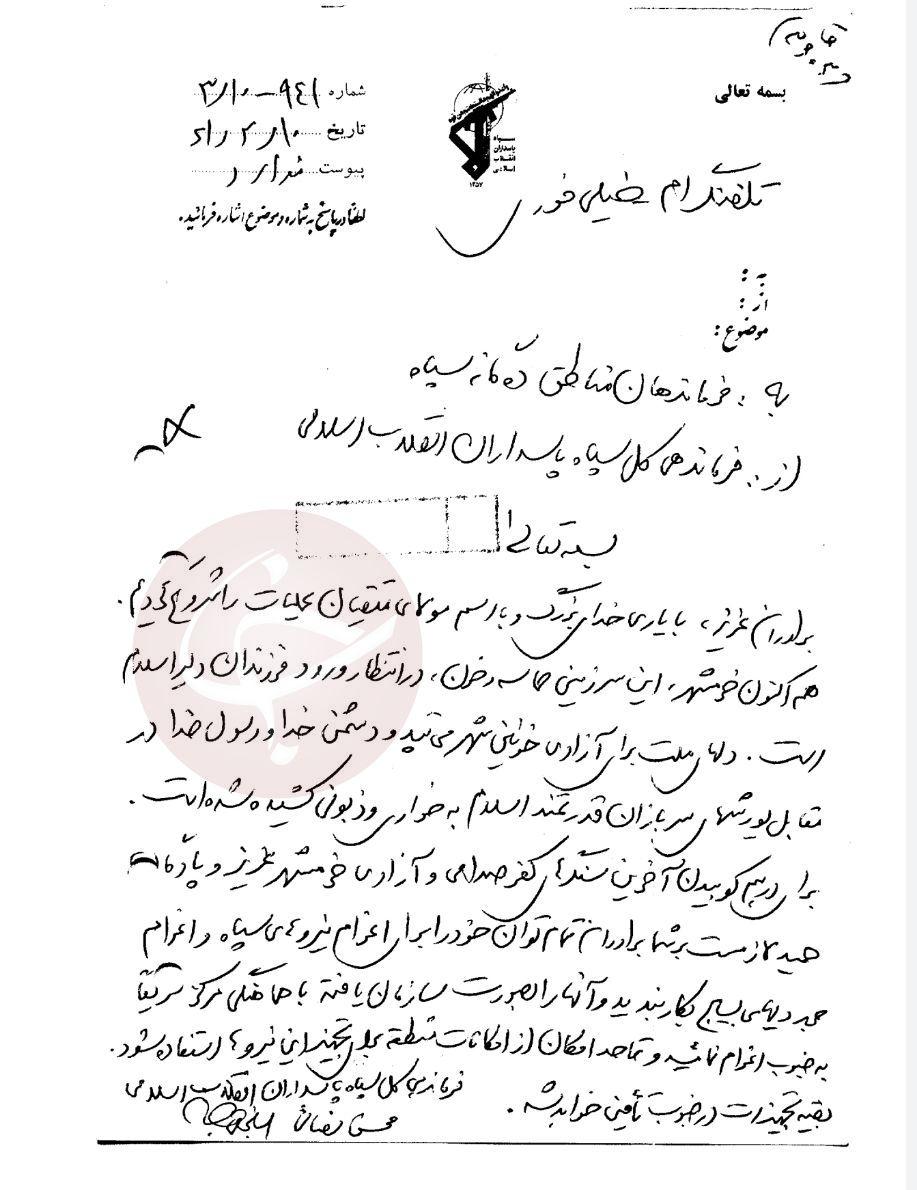 بسمه تعالی
شماره ۳/۱۰-۹۴۱
تاریخ ۶۱/۲/۱۰
پیوست ندارد
لطفا در پاسخ به شماره و موضوع اشاره فرمائید.
سپاه
پاسداران
انقلاب
اسلامی
۱۳۵۷
تلفنگرام خیلی فوری
به :
از :
موضوع :
به : فرماندهان مناطق ده گانه سپاه
از : فرماندهی کل سپاه پاسداران انقلاب اسلامی
بسمه تعالی
برادران عزیز، با یاری خدای بزرگ و با اسم مولای متقیان عملیات را شروع کردیم.
هم اکنون خرمشهر، این سرزمین حماسه و خون، در انتظار ورود فرزندان دلیر اسلام
است. دلهای ملت برای آزادی خونین شهر می تپد و دشمن خدا و رسول خدا در
مقابل یورشهای سربازان قدرتمند اسلام به خواری و زبونی کشیده شده است.
برای درهم کوبیدن آخرین سنگرهای کفر صدامی و آزادی خرمشهر عزیز و پادگان
حمید لازمست بر شما برادران تمام توان خود را برای اعزام نیروهای سپاه و اعزام
مجدد نیروهای بسیج بکار بندید و آنها را بصورت سازمان یافته با هماهنگی مرکز سریعاً
به جنوب اعزام نمائید و تا حد امکان از امکانات منطقه برای تجهیز این نیروها استفاده شود.
بقیه تجهیزات در جنوب تأمین خواهد شد.
فرماندهی کل سپاه پاسداران انقلاب اسلامی
محسن رضائی